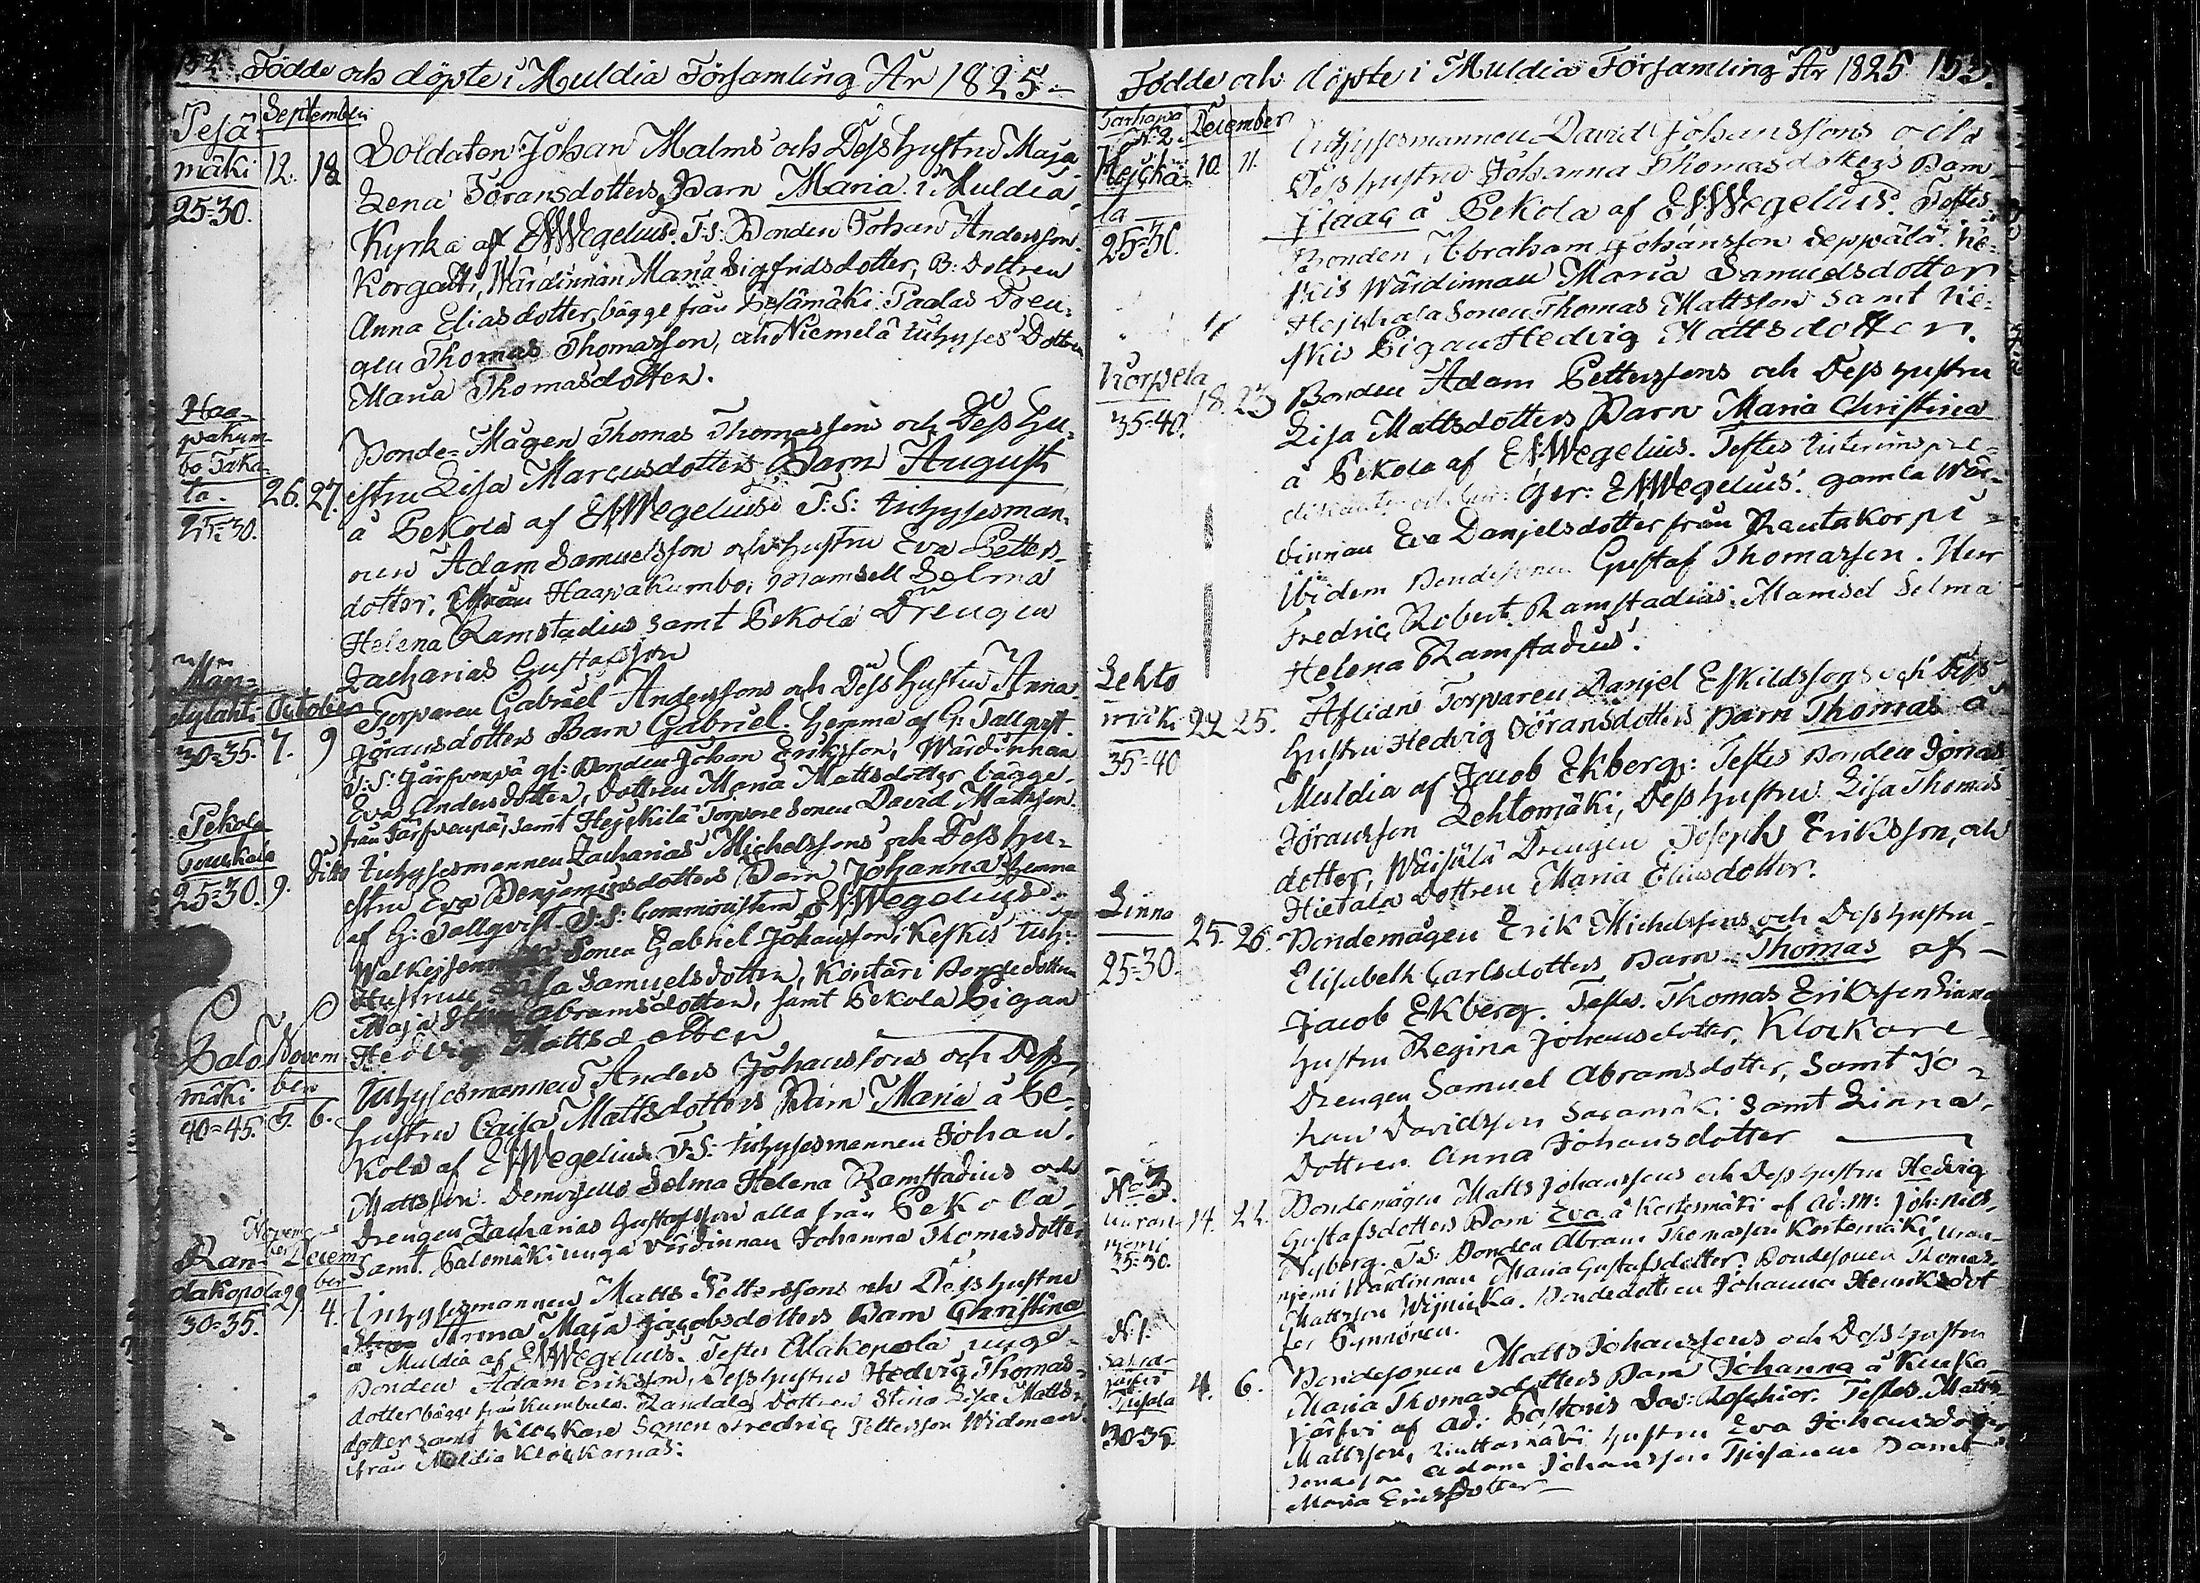 154. Födde och döpte i Muldia Församling År 1825.
September
Pesä-
mäki 12. 18
25=30.
Soldaten Johan Malms och Dess Hustru Maja
Lena Göransdotters Barn Maria i Muldia
Kyrka af E N Wegelius. T:S: Bonden Johan Andersson
Korgatti, Wärdinnan Maria Sigfridsdotter, B: Dottren
Anna Eliasdotter, bägge från Pesämäki. Paalas Dren-
gen Thomas Thomasson, och Niemelä Inhyses Dottren
Maria Thomasdotter.
Haa-
pakum-
bo Taka-
la. 26. 27.
25=30.
Bonde-Mågen Thomas Thomassons och Dess Hu-
stru Lisa Marcusdotters Barn August
å Pekola af E N Wegelius T:S: Inhysesman-
nen Adam Samuelsson och Hustru Eva Petters-
dotter, från Haapakumbo, mamsell Selma
Helena Ramstadius samt Pekola Drengen
Zacharias Gustafsson
October
30=35. 7. 9
Torparen Gabriel Anderssons och Dess Hustru Anna
Göransdotters Barn Gabriel. Hemma af G: Tallqvist.
T:S: Järfvenpä gl: Bonden Johan Eriksson, Wärdinnan
Eva Andersdotter, Dottren Maria Mattsdotter bägge
från Järfvenpä, samt Hejckilä Torpare Sonen David Mattsson
Pekola
25=30. 9. Dito
Inhysesmannen Zacharias Michelssons och Dess Hu-
stru Eva Benjaminsdotters Barn Johanna hemma
af G: Tallqvist. T:S: Comministern E N Wegelius
Sonen Gabriel Johansson, Keskis Inh:
Hustrun Lisa Samuelsdotter, Köntäri Bondedottren
Maja Stina Abramsdotter, samt Pekola Pigan
Hedvig Mattsdotter
Salo Novem-
mäki ber
40=45. 5. 6.
Inhysesmannen Anders Johanssons och Dess
Hustru Caisa Mattsdotters Barn Maria å Pe-
kola af E N Wegelius T:S: Inhysesmannen Johan
Mattsson. Demoiselle Selma Helena Ramstadius och
Drengen Zacharias Gustafsson alla från Pekola
samt Salomäki unga värdinnan Johanna Thomasdotter
Novem-
ber Decem-
ber
Ran-
dakopola 29 4.
30=35.
Inhysesmannen Matts Petterssons och Dess Hustru
Anna Maja Jacobsdotters Barn Christina
å Muldia af E N Wegelius. Testes Alakopola unge
Bonden Adam Eriksson, Dess Hustru Hedvig Thomas-
dotter bägge från Kumbula. Randala Dottren Stina Lisa Matts-
dotter samt Klockare Sonen Fredric Pettersson Widman
från Muldia Klockarnas.
Födde och döpte i Muldia Församling År 1825 155.
December
N:2.
Hejchä- 10. 11.
la
25=30.
Inhysesmannen David Johanssons och
Dess Hustru Johanna Thomasdotters Barn
Isaac å Pekola af E N Wegelius. Testes
Bonden Abraham Johansson Seppälä. Ke-
skis Wärdinnan Maria Samuelsdotter
Hejkkala Sonen Thomas Mattsson samt Ke-
skis Pigan Hedvig Mattsdotter.
Korpela 18. 23
35=40.
Bonden Adam Petterssons och Dess Hustru
Lisa Mattsdotters Barn Maria Christina
å Pekola af E N Wegelius. Testes Interimspre-
dikanten Ger: E N Wegelius. gamla Wär-
dinnan Eva Danjelsdotter från Rautakorpi
Ibidem Bondesonen Gustaf Thomasson. Herr
Fredric Robert Ramstadius. Mamsel Selma
Helena Ramstadius.
Lehto
mäki 22 25.
35=40
Aflidne Torparen Danjel Eskildssons och Dess
Hustru Hedvig Göransdotters Barn Thomas å
Muldia af Jacob Ekberg: Testes Bonden Jonas
Göransson Lehtomäki, Dess Hustru Lisa Thomas-
dotter, Wäisälä Drengen Joseph Eriksson, och
Hietala Dottren Maria Eliasdotter.
Linna
25. 26.
25=30.
Bondemågen Erik Michelssons och Dess Hustru
Elisabeth Carlsdotters Barn Thomas af
Jacob Ekberg. Testes. Thomas Eriksson Linna
Hustru Regina Johansdotter, Klockare
Drengen Samuel Abramsdotter, Samt Jo-
han Davidsson Saramäki samt Linna
Dottren Anna Johansdotter
N:o 3.
14. 22.
25=30.
Bondemågen Matts Johanssons och Dess Hustru Hedvig
Gustafsdotters Barn Eva å Kortesmäki af Ad: M: Joh: Nils
Nyberg. T:S: Bonden Abram Thomasson Kortemäki,
Wärdinnan Maria Gustafsdotter. Bondesonen Thomas
Mattsson Wijnicka. Bondedottren Johanna Henriksdot-
ter Synnönen.
N:1.
4. 6.
30-35
Bondesonen Matts Johanssons och Dess Hustru
Maria Thomasdotters Barn Johanna å
järfvi af Ad: Pastoris Dav: Roschier. Testes. Matts
Mattsson, Hustru Eva Johansdotter
Adam Johansson samt
Maria Ericsdotter